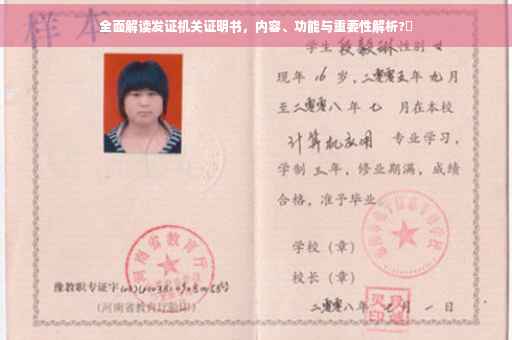 全面解读发证机关证明书，内容、功能与重要性解析?
样本
学生段毅琳性别女
现年16岁，二零零五年九月
至二零零八年七月在本校
计算机应用专业学习，
学制三年，修业期满，成绩
合格，准予毕业。
学校（章）
校长（章）
二零零八年 月一日
河南省教育厅
豫教职专证字
（河南省教育厅验印）